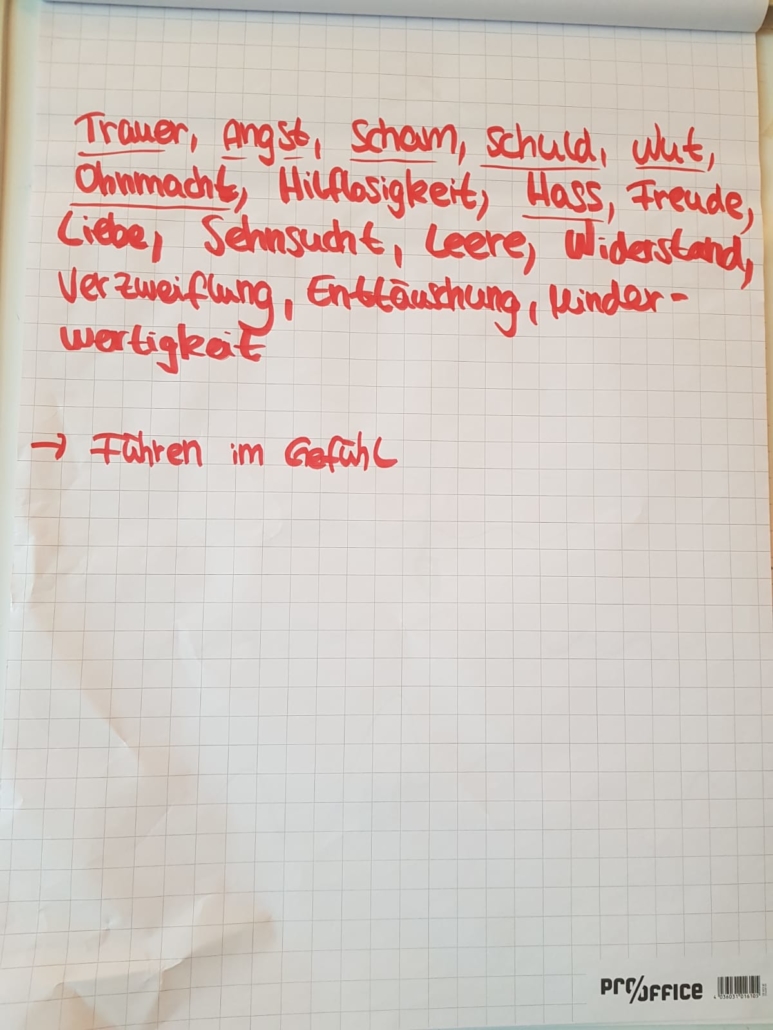 Trauer, Angst, Scham, Schuld, Wut,
Ohnmacht, Hilflosigkeit, Hass, Freude,
Liebe, Sehnsucht, Leere, Widerstand,
Verzweiflung, Enttäuschung, Minder-
wertigkeit
→ Führen im Gefühl
PRO/OFFICE